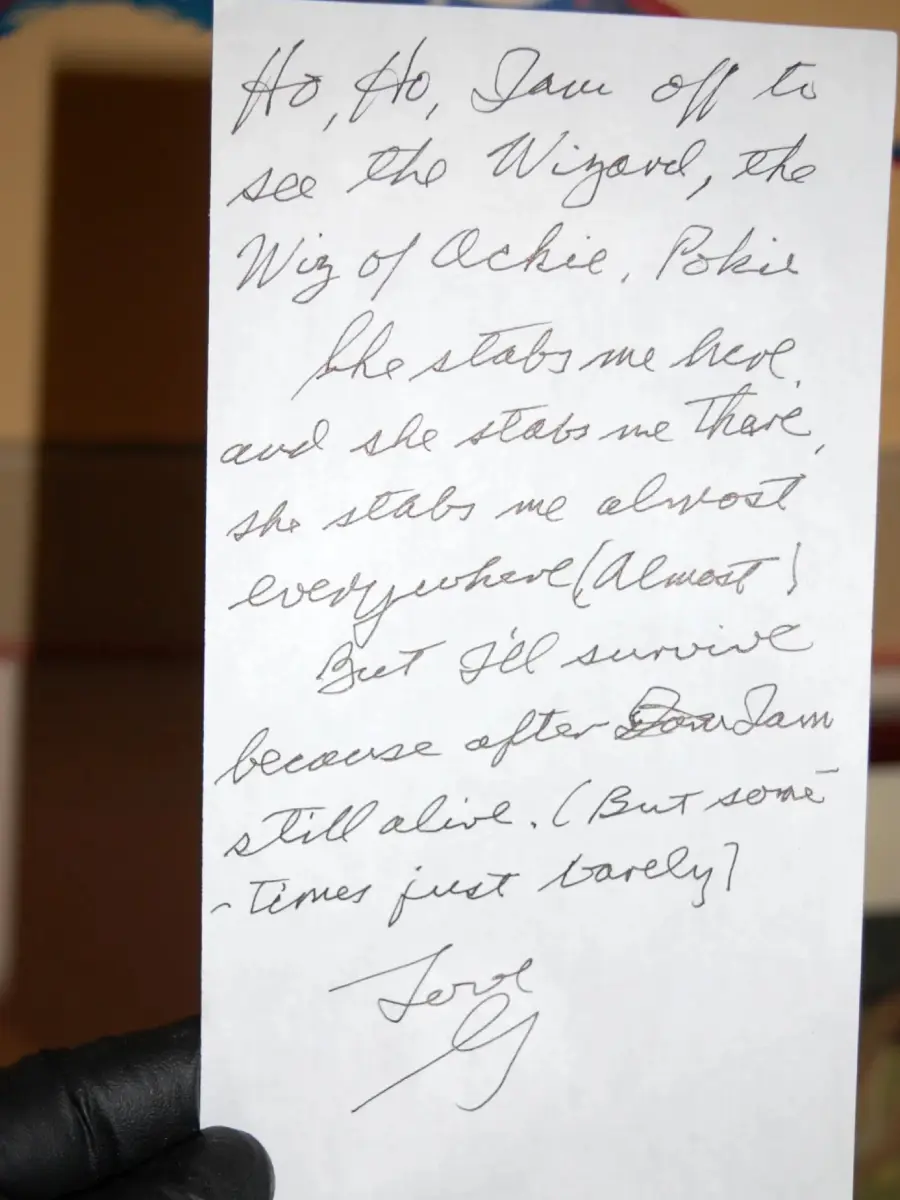 Ho, Ho, I am off to
see the Wizard, the
Wiz of Ockie, Pokie
She stabs me here,
and she stabs me There,
she stabs me almost
everywhere (Almost)
But I'll survive
because after I am
still alive. (But some-
-times just barely)
Love
G